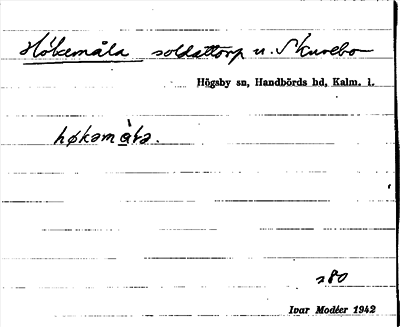 Hökemåla soldattorp u. Skurebo
Högsby sn, Handbörds hd, Kalm. l.
høkəmåla.
280
Ivar Modéer 1942